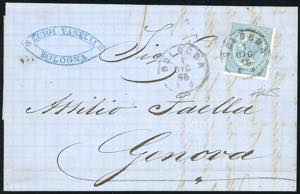 LUIGI VASELLI
BOLOGNA
Sig.
BOLOGNA
DIC
65
BOLOGNA
DIC
65
Attilio Faella
Genova